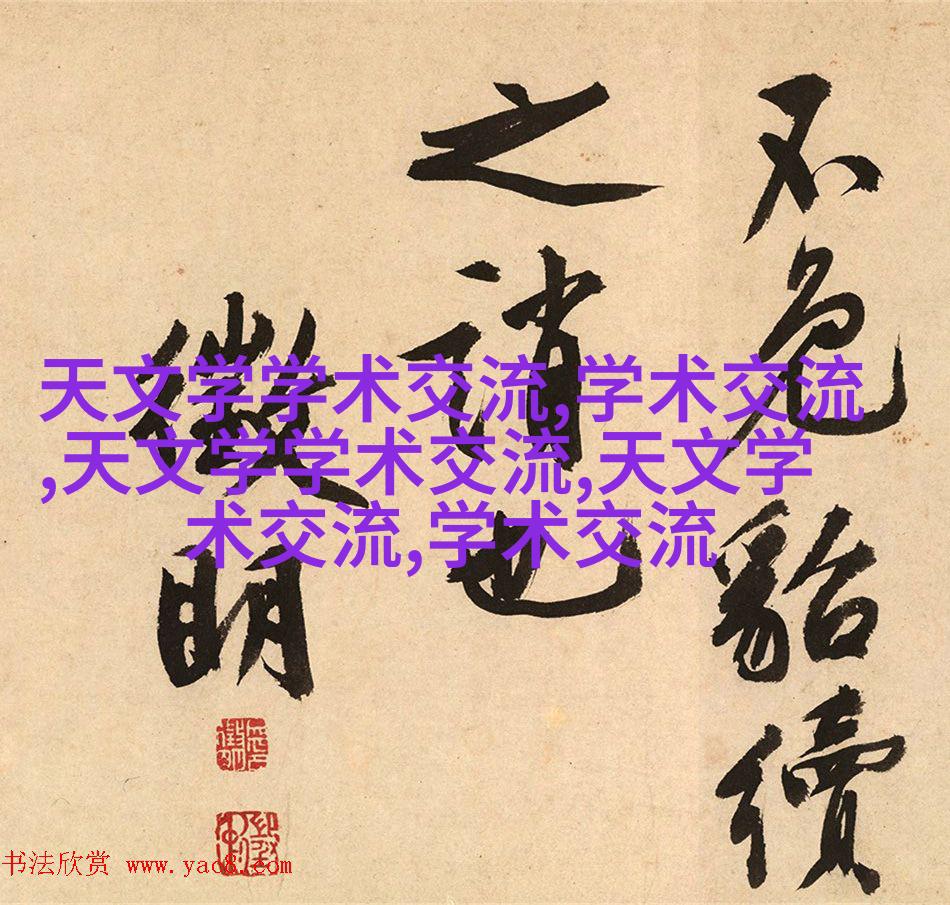 不免貂續
之誚也
徵明
天文学学术交流,学术交流
,天文学学术交流,天文学学
术交流,学术交流
书法欣赏 www.yac8.com